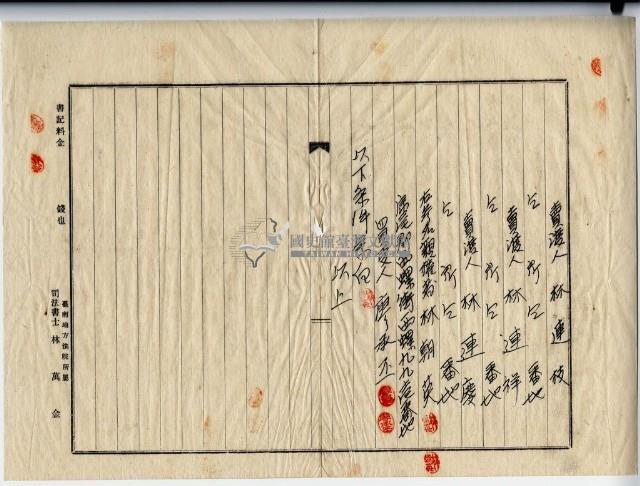 賣渡人 林連枝
仝所仝番地
賣渡人 林連祥
仝所仝番地
賣渡人 林連慶
仝所仝番地
右弐名親權者 林朝英
西螺街西螺九九
買受人 廖承丕
以下余白
以上
書記料金 錢也
臺南地方法院所屬
司法書士 林萬金
國史館臺灣文獻館
TAIWAN HISTORICA